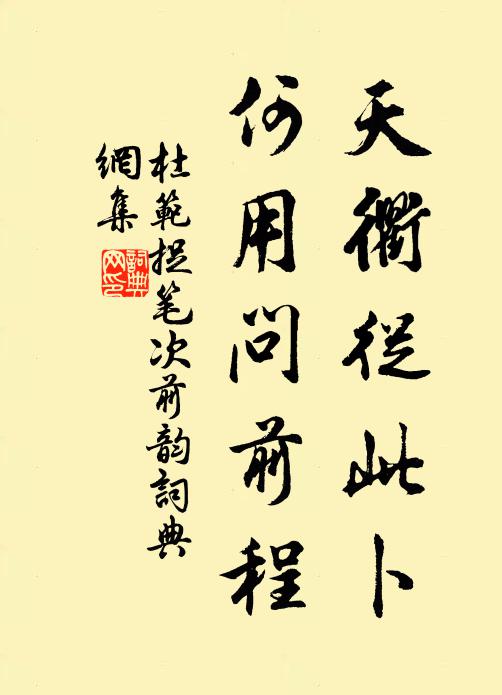 天衢從此卜
何用問前程
杜範捉笔次前韵詞典
網集
詞典
网印